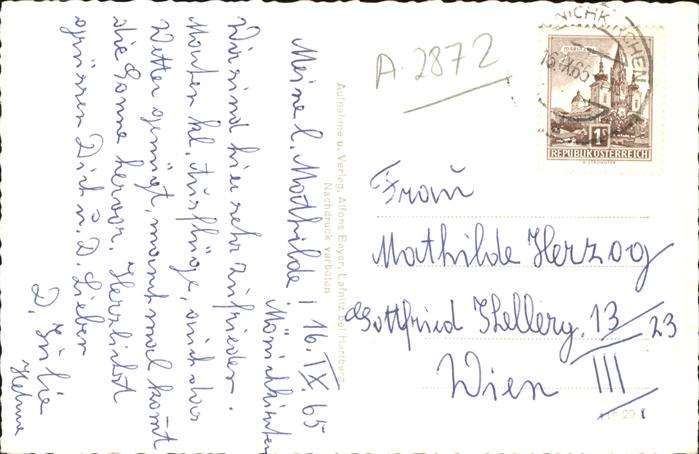 Mönichkirchen
16. IX. 65
Meine l. Mathilde!
Wir sind hier sehr zufrieden.
Machen kl. Ausflüge, auch das
Wetter genügt, manchmal kommt
die Sonne hervor. Herzlichst
grüssen Dich u. D. Lieben
D. Julie
Helma
Aufnahme u. Verlag, Alfons Beyer, Lafnitz bei Hartberg
Nachdruck verboten
A.2872
NICHKIRCHEN
16.IX.65
1S
REPUBLIK ÖSTERREICH
Frau
Mathilde Herzog
Gottfried Kellerg. 13/23
Wien III